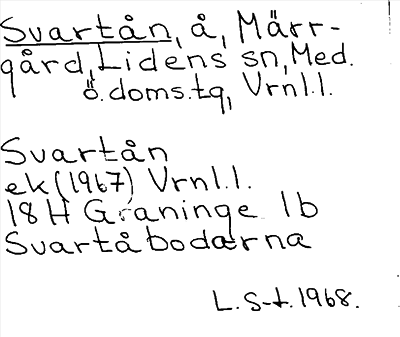 Svartån, å, Märr-
gård, Lidens sn, Med.
ö. doms.tg, Vrnl.l.
Svartån
ek (1967) Vrnl.l.
18 H Graninge 1b
Svartåbodarna
L. S-t. 1968.